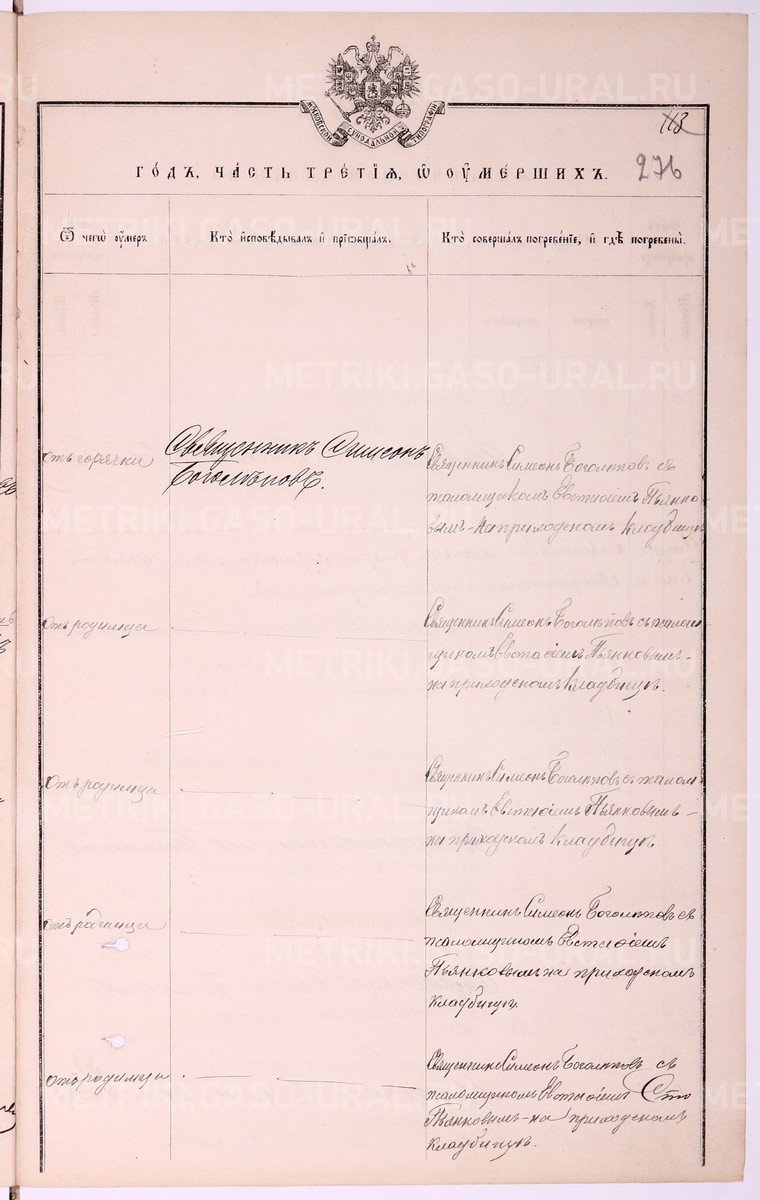 МОСКОВСКОЙ СѴНОДАЛЬНОЙ ТИПОГРАФІИ
113
276
ГО́ДЪ, ЧА́СТЬ ТРЕ́ТІѦ, Ѽ ОУ҆МЕ́РШИХЪ.
Ѿ чегѡ̀ оу҆́меръ
Кто̀ и҆сповѣ́дывалъ и҆ прїѻбща́лъ.
Кто̀ соверша́лъ погребе́нїе, и҆ гдѣ̀ погребены̀.
отъ горячки
Священникъ Симеонъ
Боголѣповъ.
Священникъ Симеонъ Боголѣповъ съ
псаломщикомъ Евстаѳіемъ Пьянко-
вымъ-на приходскомъ кладбищѣ
отъ родимца
Священникъ Симеонъ Боголѣповъ съ псалом
щикомъ Евстаѳіемъ Пьянковымъ-
на приходскомъ кладбищѣ.
отъ родимца
Священникъ Симеонъ Боголѣповъ съ псалом
щикомъ Евстаѳіемъ Пьянковымъ-
на приходскомъ кладбищѣ.
отъ родимца
Священникъ Симеонъ Боголѣповъ съ
псаломщикомъ Евстаѳіемъ
Пьянковымъ на приходскомъ
кладбищѣ.
отъ родимца
Священникъ Симеонъ Боголѣповъ съ
псаломщикомъ Евстаѳіемъ
Пьянковымъ-на приходскомъ
кладбищѣ.
METRIKI.GASO-URAL.RU